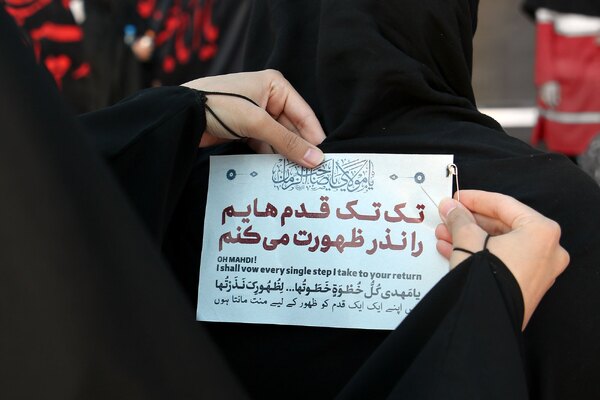 یا مولای یا صاحب الزمان
تک تک قدم هایم
را نذر ظهورت می‌کنم
OH MAHDI!
I shall vow every single step I take to your return
یامهدي كُلُّ خُطْوَةٍ خَطَوتُها... لِظُهورِكَ نَذَرْتُها
اپنے ایک ایک قدم کو ظہور کے لیے منت مانتا ہوں